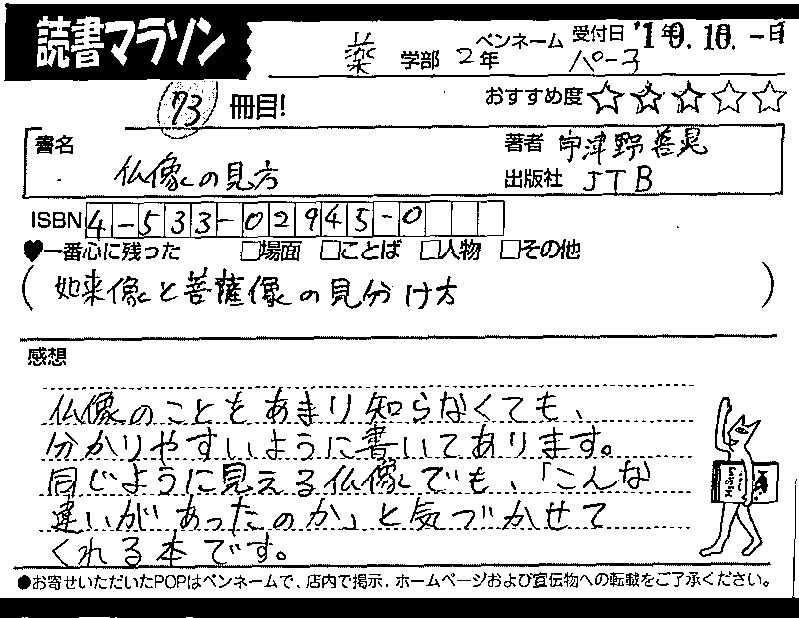 読書マラソン
薬 学部 2年 ペンネーム パー子 受付日 '10.10.-1
73 冊目! おすすめ度 ☆☆☆☆☆
書名 仏像の見方 著者 宇津野善晃
出版社 JTB
ISBN 4-533-02945-0
♥一番心に残った □場面 □ことば □人物 □その他
(如来像と菩薩像の見分け方)
感想
仏像のことをあまり知らなくても、
分かりやすいように書いてあります。
同じように見える仏像でも、「こんな
違いがあったのか」と気づかせて
くれる本です。
●お寄せいただいたPOPはペンネームで、店内で掲示、ホームページおよび宣伝物への転載をご了承ください。